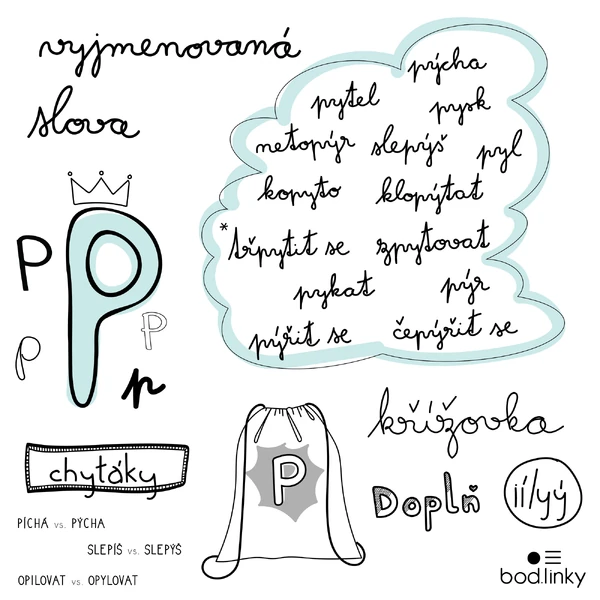 vyjmenovaná
slova
pýcha
pytel pysk
netopýr slepýš pyl
kopyto klopýtat
*třpytit se zpytovat
pykat pýr
pýřit se čepýřit se
P
P
P
p
p
křížovka
chytáky
P
Doplň
ií/yý
PÍCHÁ vs. PÝCHA
SLEPÍŠ vs. SLEPÝŠ
OPILOVAT vs. OPYLOVAT
bod.linky